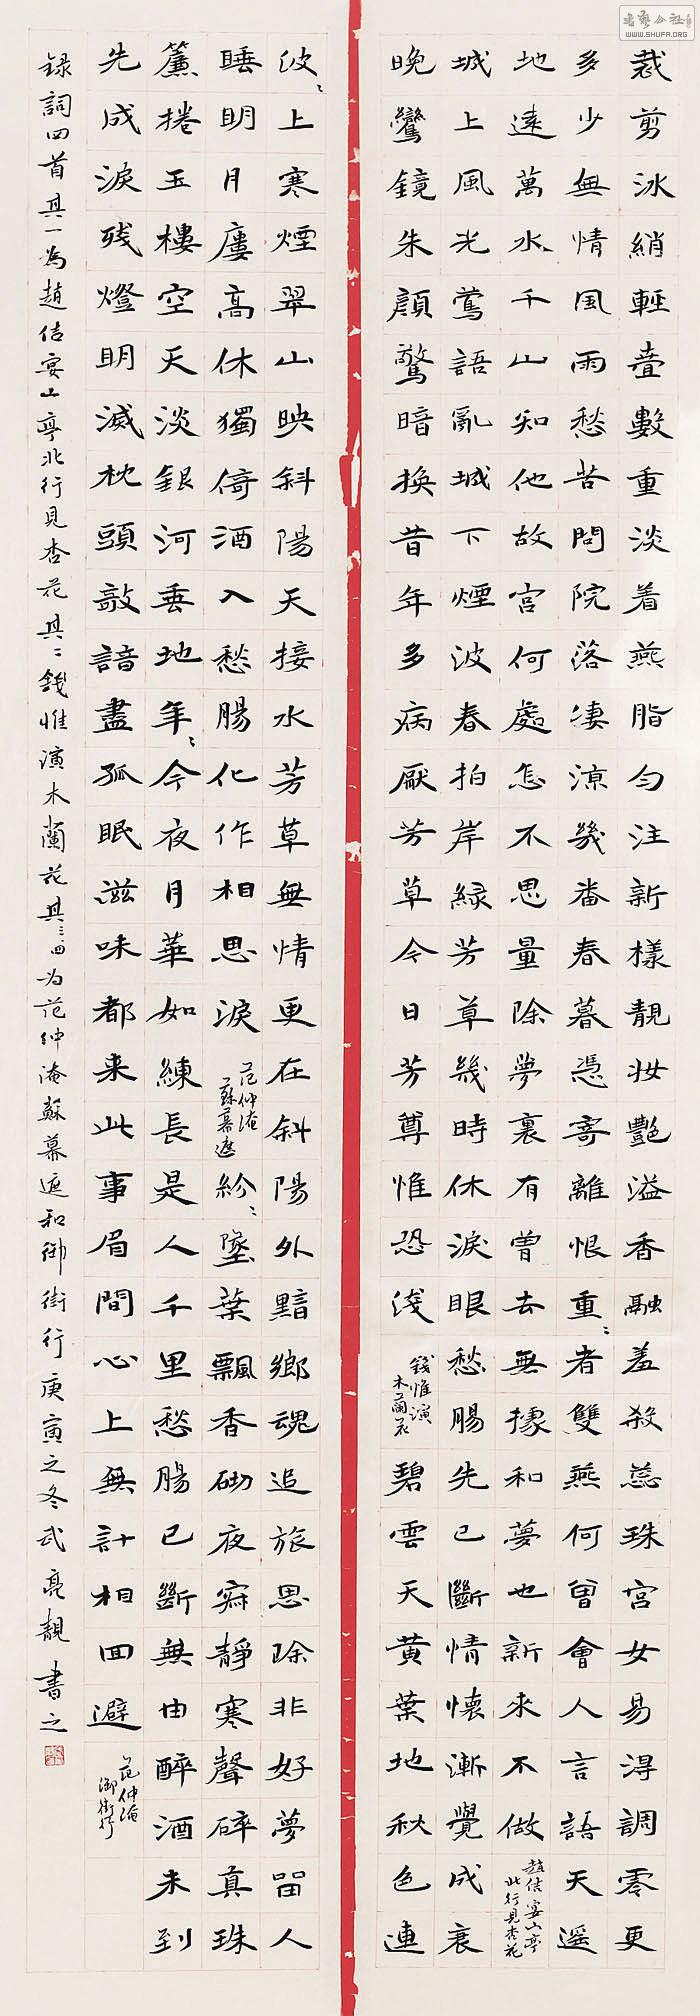 裁剪冰綃輕疊數重淡着燕脂勻注新樣靚妝艷溢香融羞殺蕊珠宮女易淂調零更
多少無情風雨愁苦問院落淒涼幾番春暮憑寄離恨重〻者雙燕何曾會人言語天遥
地遠萬水〻千山知他故宮何處怎不思量除夢裏有曾去無據和夢也新來不做
趙佶宴山亭
北行見杏花
城上風光鶯語亂城下煙波春拍岸緑芳草幾時休淚眼愁腸先已斷情懷漸覺成衰
晚鸞鏡朱顔驚暗換昔年多病厭芳草今日芳尊惟恐淺
錢惟演
木蘭花
碧雲天黄葉地秋色連
波〻上寒煙翠山映斜陽天接水芳草無情更在斜陽外黯鄉魂追旅思除非好夢留人
睡明月廔高休獨倚酒入愁腸化作相思淚
范仲淹
蘇幕遮
紛〻墜葉飄香砌夜寂靜寒聲碎真珠
簾捲玉樓空天淡銀河垂地年〻今夜月華如練長是人千里愁腸已斷無由醉酒未到
先成淚殘燈明滅枕頭敧諳盡孤眠滋味都来此事眉間心上無計相回避
范仲淹
御街行
録詞四首其一為趙佶宴山亭北行見杏花其二錢惟演木蘭花其三四为范仲淹蘇幕遮和御街行庚寅之冬武亮靚書之
書藝公社
WWW.SHUFA.ORG